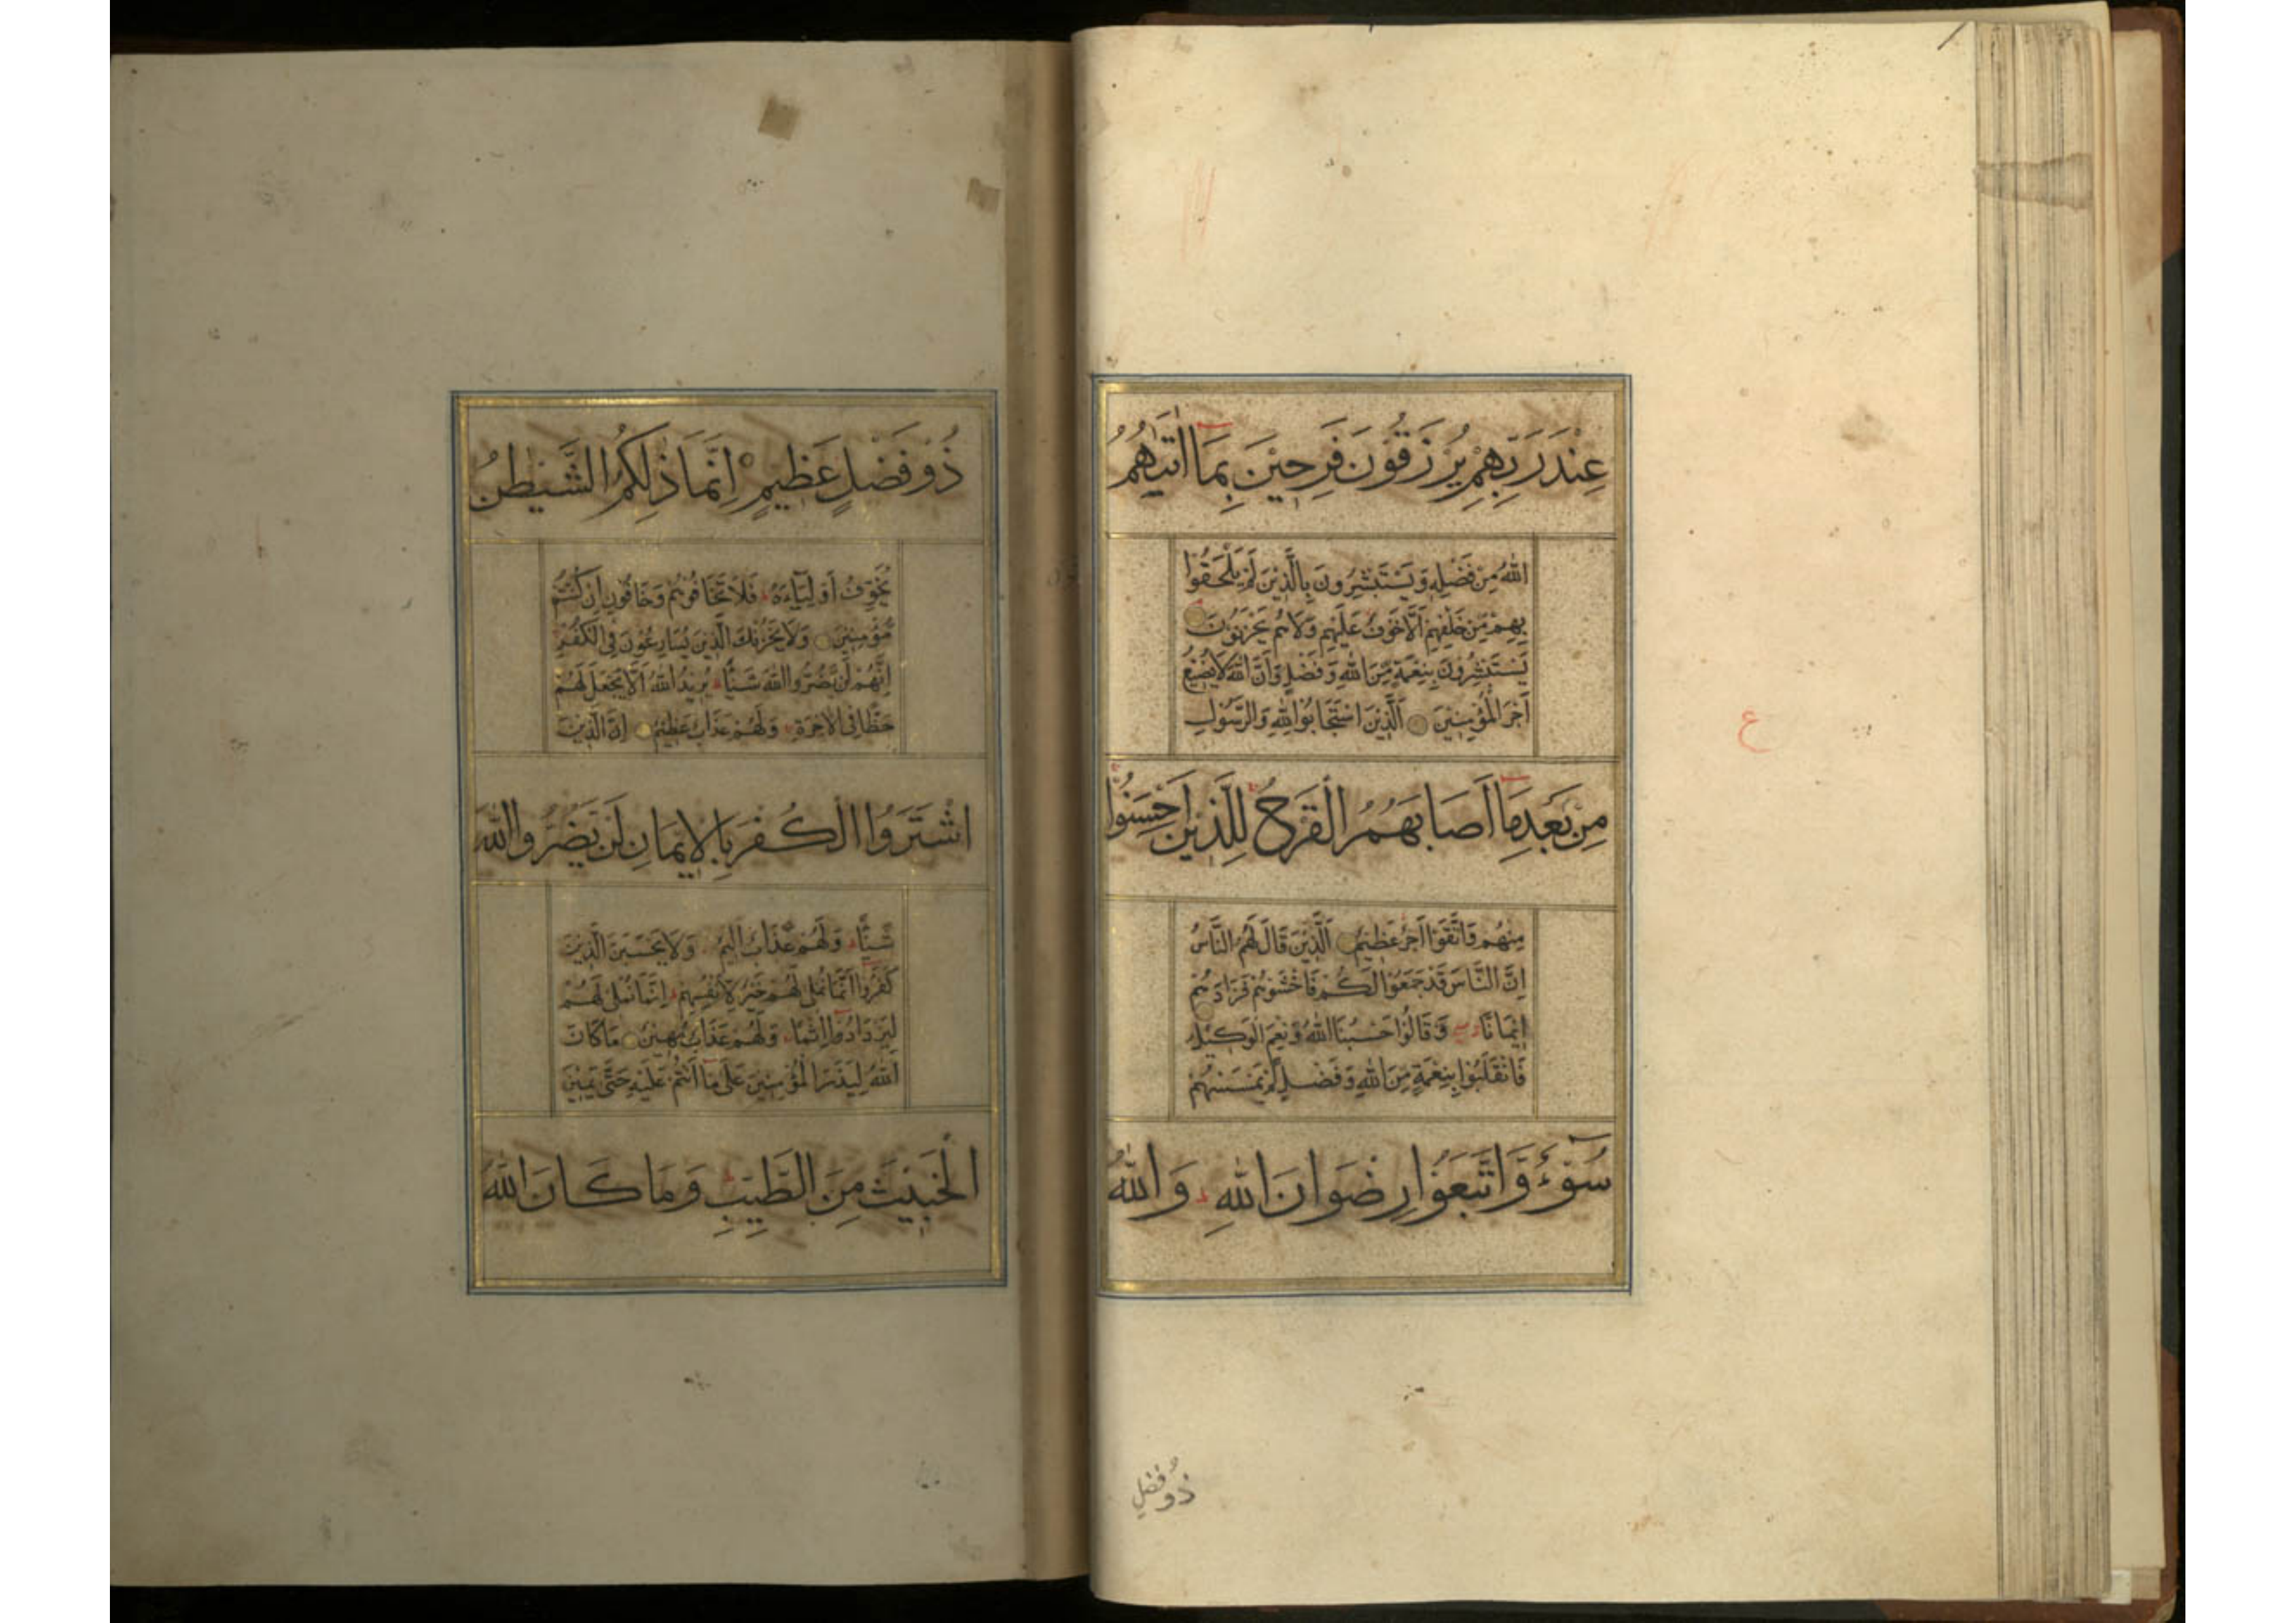 عِنْدَ رَبِّهِمْ يُرْزَقُونَ فَرِحِيْنَ بِمَا اٰتٰيهُمُ
اللّٰهُ مِنْ فَضْلِهٖ وَيَسْتَبْشِرُونَ بِالَّذِيْنَ لَمْ يَلْحَقُوْا
بِهِمْ مِّنْ خَلْفِهِمْ اَلَّا خَوْفٌ عَلَيْهِمْ وَلَا هُمْ يَحْزَنُوْنَ
يَسْتَبْشِرُونَ بِنِعْمَةٍ مِّنَ اللّٰهِ وَفَضْلٍ وَّاَنَّ اللّٰهَ لَا يُضِيْعُ
اَجْرَ الْمُؤْمِنِيْنَ اَلَّذِيْنَ اسْتَجَابُوْا لِلّٰهِ وَالرَّسُوْلِ
مِنْ بَعْدِ مَا اَصَابَهُمُ الْقَرْحُ لِلَّذِيْنَ اَحْسَنُوْا
مِنْهُمْ وَاتَّقَوْا اَجْرٌ عَظِيْمٌ اَلَّذِيْنَ قَالَ لَهُمُ النَّاسُ
اِنَّ النَّاسَ قَدْ جَمَعُوْا لَكُمْ فَاخْشَوْهُمْ فَزَادَهُمْ
اِيْمَانًا وَّقَالُوْا حَسْبُنَا اللّٰهُ وَنِعْمَ الْوَكِيْلُ
فَانْقَلَبُوْا بِنِعْمَةٍ مِّنَ اللّٰهِ وَفَضْلٍ لَمْ يَمْسَسْهُمْ
سُوْٓءٌ وَّاتَّبَعُوْا رِضْوَانَ اللّٰهِ وَاللّٰهُ
ع
ذُو فضلٍ
ذُوْ فَضْلٍ عَظِيْمٍ اِنَّمَا ذٰلِكُمُ الشَّيْطٰنُ
يُخَوِّفُ اَوْلِيَآءَهٗ فَلَا تَخَافُوْهُمْ وَخَافُوْنِ اِنْ كُنْتُمْ
مُؤْمِنِيْنَ وَلَا يَحْزُنْكَ الَّذِيْنَ يُسَارِعُوْنَ فِى الْكُفْرِ
اِنَّهُمْ لَنْ يَّضُرُّوا اللّٰهَ شَيْئًا يُرِيْدُ اللّٰهُ اَلَّا يَجْعَلَ لَهُمْ
حَظًّا فِى الْاٰخِرَةِ وَلَهُمْ عَذَابٌ عَظِيْمٌ اِنَّ الَّذِيْنَ
اشْتَرَوُا الْكُفْرَ بِالْاِيْمَانِ لَنْ يَضُرُّوا اللّٰهَ
شَيْئًا وَلَهُمْ عَذَابٌ اَلِيْمٌ وَلَا يَحْسَبَنَّ الَّذِيْنَ
كَفَرُوْا اَنَّمَا نُمْلِىْ لَهُمْ خَيْرٌ لِاَنْفُسِهِمْ اِنَّمَا نُمْلِىْ لَهُمْ
لِيَزْدَادُوْا اِثْمًا وَلَهُمْ عَذَابٌ مُهِيْنٌ مَا كَانَ
اللّٰهُ لِيَذَرَ الْمُؤْمِنِيْنَ عَلٰى مَا اَنْتُمْ عَلَيْهِ حَتّٰى يَمِيْزَ
الْخَبِيْثَ مِنَ الطَّيِّبِ وَمَا كَانَ اللّٰهُ